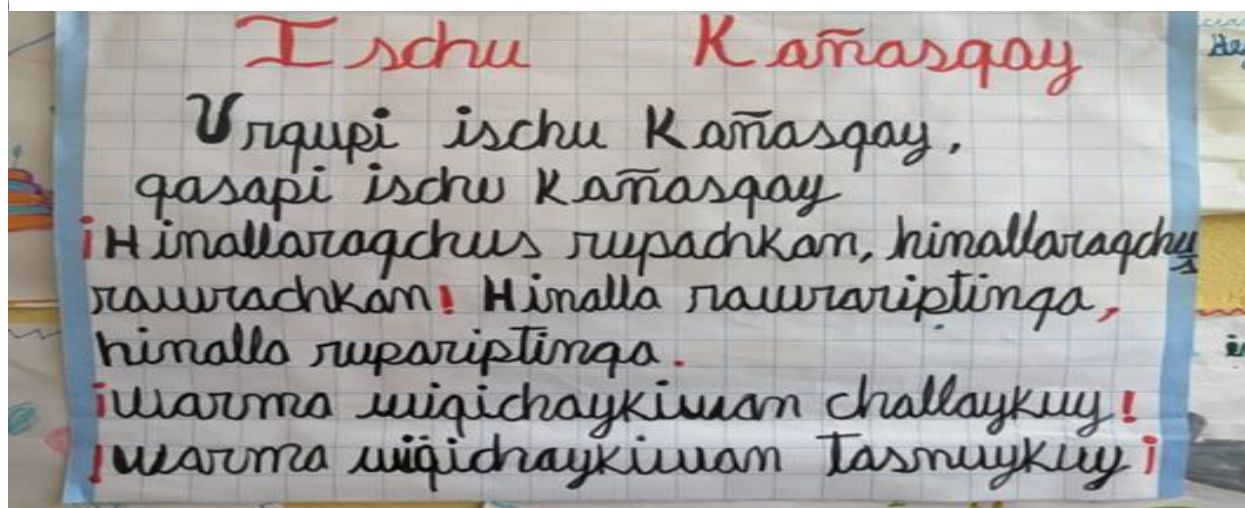 Ischu Kañasqay
Urqupi ischu Kañasqay,
qasapi ischu Kañasqay
¡Hinallaraqchus rupachkan, hinallaraqchus
rawrachkan! Hinalla rawrariptinqa,
hinalla rupariptinqa.
¡warma wiqichaykiwan challaykuy!
!warma wiqichaykiwan Tasnuykuy¡